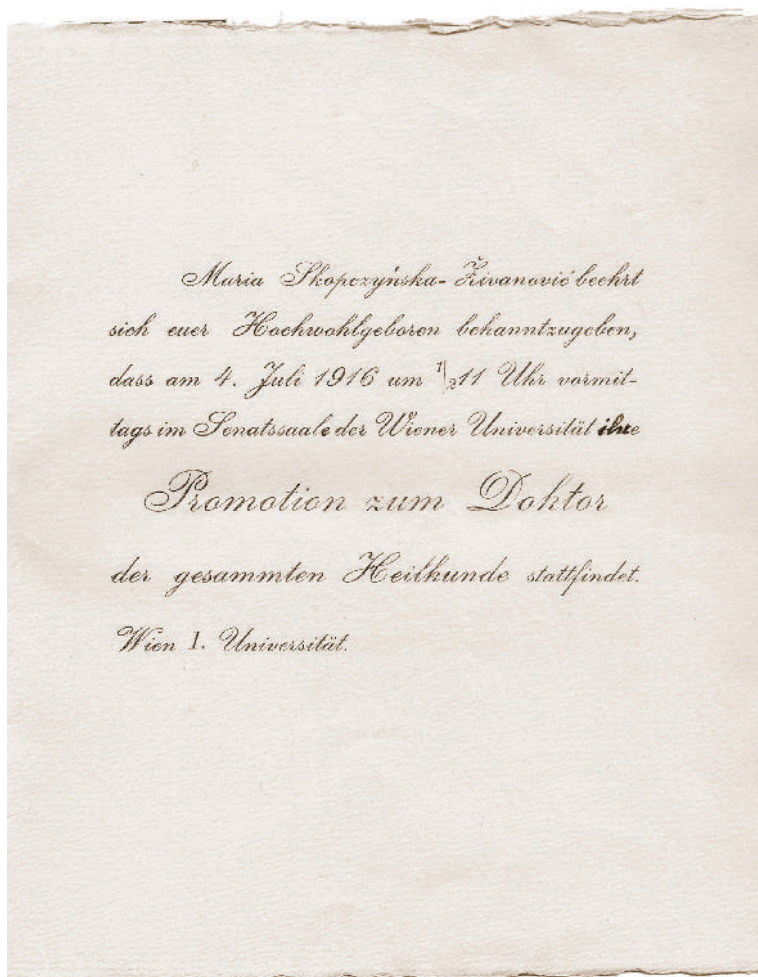 Maria Skopczyńska-Živanović beehrt
sich euer Hochwohlgeboren bekanntzugeben,
dass am 4. Juli 1916 um ½11 Uhr vormit-
tags im Senatssaale der Wiener Universität ihre
Promotion zum Doktor
der gesammten Heilkunde stattfindet.
Wien I. Universität.